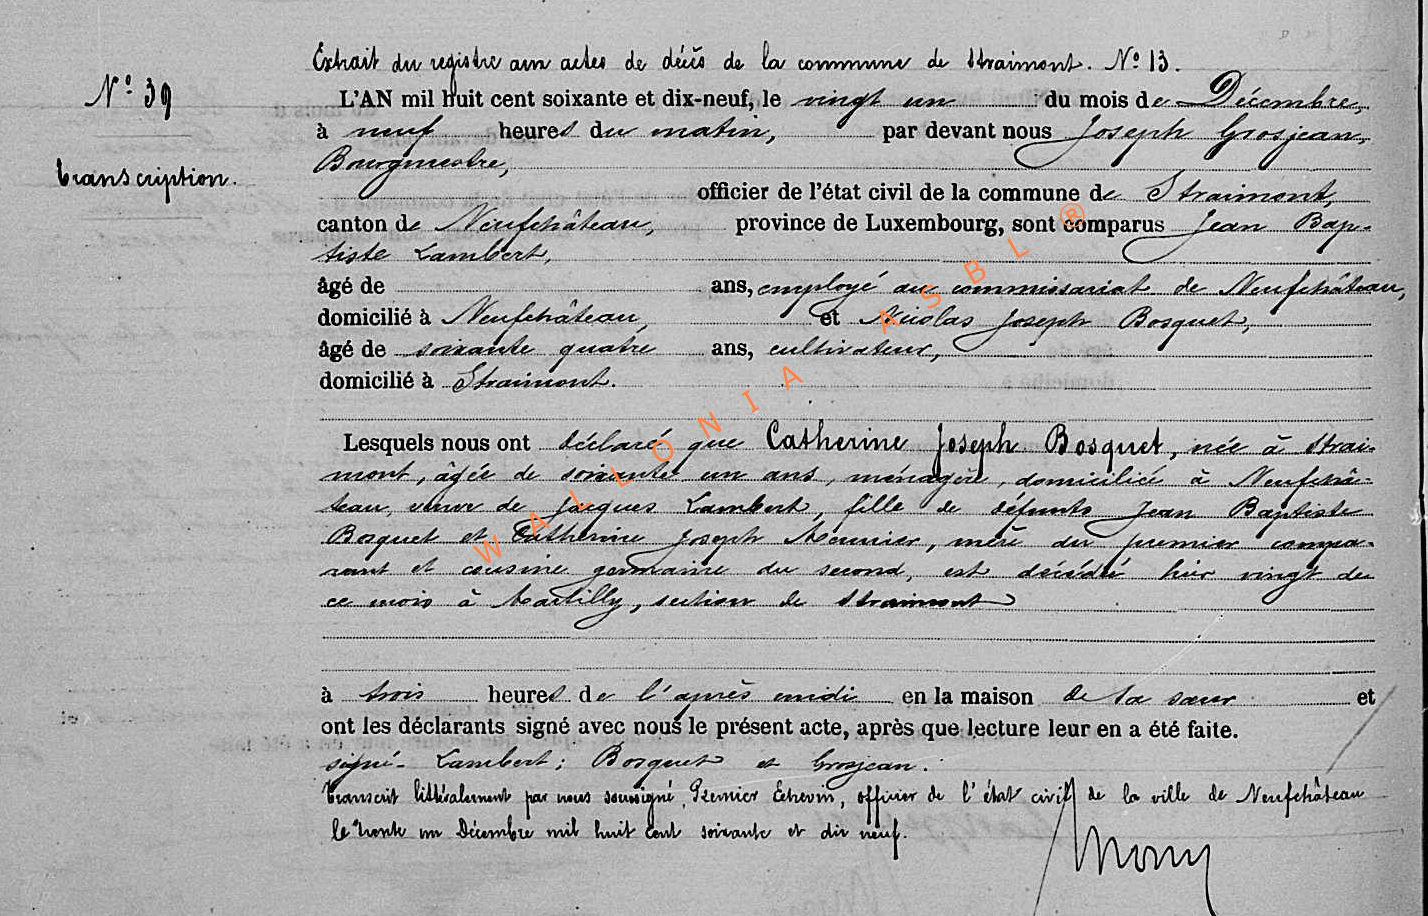 Extrait du registre aux actes de décès de la commune de Straimont. N° 13.
N° 39
L'AN mil huit cent soixante et dix-neuf, le vingt un du mois de Décembre,
à neuf heures du matin, par devant nous Joseph Grosjean,
Bourgmestre,
Transcription.
officier de l'état civil de la commune de Straimont,
canton de Neufchâteau, province de Luxembourg, sont comparus Jean Bap-
tiste Lambert,
âgé de ans, employé au commissariat de Neufchâteau,
domicilié à Neufchâteau, et Nicolas Joseph Bosquet,
âgé de soixante quatre ans, cultivateur,
domicilié à Straimont.
Lesquels nous ont déclaré que Catherine Joseph Bosquet, née à Strai-
mont, âgée de soixante un ans, ménagère, domiciliée à Neufchâ-
teau, veuve de Jacques Lambert, fille de défunts Jean Baptiste
Bosquet et Catherine Joseph Meunier, mère du premier compa-
rant et cousine germaine du second, est décédée hier vingt de
ce mois à Martilly, section de Straimont
à trois heures de l'après midi en la maison de sa sœur et
ont les déclarants signé avec nous le présent acte, après que lecture leur en a été faite.
signé - Lambert; Bosquet et Grosjean.
Transcrit littéralement par nous soussigné, Premier Echevin, officier de l'état civil de la ville de Neufchâteau
le trente un Décembre mil huit cent soixante et dix neuf.
WALLONIA ASBL ®